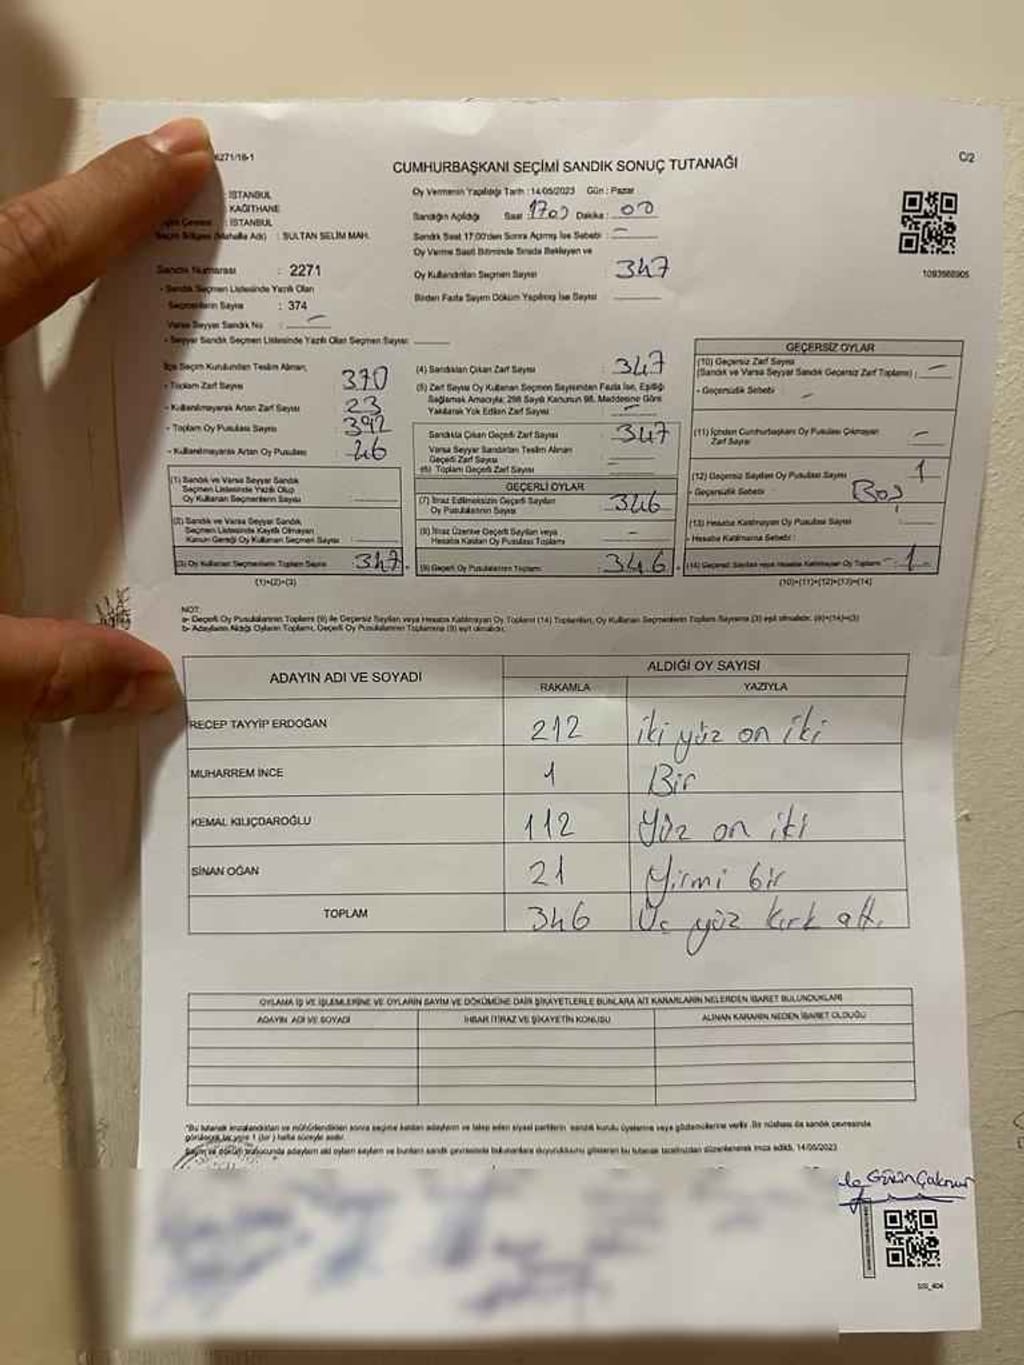 6271/16-1
C/2
CUMHURBAŞKANI SEÇİMİ SANDIK SONUÇ TUTANAĞI
: İSTANBUL
: KAĞITHANE
: İSTANBUL
(Mahalle Adı) : SULTAN SELİM MAH.
Sandık Numarası : 2271
- Sandık Seçmen Listesinde Yazılı Olan
Seçmenlerin Sayısı : 374
Varsa Seyyar Sandık No : -
- Seyyar Sandık Seçmen Listesinde Yazılı Olan Seçmen Sayısı:
Oy Vermenin Yapıldığı Tarih : 14/05/2023 Gün : Pazar
Sandığın Açıldığı Saat Dakika : 00
Sandık Saat 17:00'den Sonra Açılmış İse Sebebi : -
Oy Verme Saati Bitiminde Sırada Bekleyen ve
Oy Kullandırılan Seçmen Sayısı : 347
Birden Fazla Sayım Döküm Yapılmış İse Sayısı :
1093988905
İlçe Seçim Kurulundan Teslim Alınan;
- Toplam Zarf Sayısı : 370
- Kullanılmayarak Artan Zarf Sayısı : 23
- Toplam Oy Pusulası Sayısı : 392
- Kullanılmayarak Artan Oy Pusulası : 46
(1) Sandık ve Varsa Seyyar Sandık
Seçmen Listesinde Yazılı Olup
Oy Kullanan Seçmenlerin Sayısı :
(2) Sandık ve Varsa Seyyar Sandık
Seçmen Listesinde Kayıtlı Olmayan
Kanun Gereği Oy Kullanan Seçmen Sayısı :
(3) Oy Kullanan Seçmenlerin Toplam Sayısı : 347
(1)+(2)=(3)
(4) Sandıktan Çıkan Zarf Sayısı : 347
(5) Zarf Sayısı Oy Kullanan Seçmen Sayısından Fazla İse, Eşitliği
Sağlamak Amacıyla; 298 Sayılı Kanunun 98. Maddesine Göre
Yakılarak Yok Edilen Zarf Sayısı : -
Sandıkta Çıkan Geçerli Zarf Sayısı : 347
Varsa Seyyar Sandıktan Teslim Alınan
Geçerli Zarf Sayısı : -
(6) Toplam Geçerli Zarf Sayısı :
GEÇERLİ OYLAR
(7) İtiraz Edilmeksizin Geçerli Sayılan
Oy Pusulalarının Sayısı : 346
(8) İtiraz Üzerine Geçerli Sayılan veya
Hesaba Katılan Oy Pusulası Toplamı : -
(9) Geçerli Oy Pusulalarının Toplamı : 346
GEÇERSİZ OYLAR
(10) Geçersiz Zarf Sayısı
(Sandık ve Varsa Seyyar Sandık Geçersiz Zarf Toplamı) : -
- Geçersizlik Sebebi : -
(11) İçinden Cumhurbaşkanı Oy Pusulası Çıkmayan
Zarf Sayısı : -
(12) Geçersiz Sayılan Oy Pusulası Sayısı : 1
- Geçersizlik Sebebi : Boş
(13) Hesaba Katılmayan Oy Pusulası Sayısı :
- Hesaba Katılmama Sebebi :
(14) Geçersiz Sayılan veya Hesaba Katılmayan Oy Toplamı : 1
(10)+(11)+(12)+(13)=(14)
NOT:
a- Geçerli Oy Pusulalarının Toplamı (9) ile Geçersiz Sayılan veya Hesaba Katılmayan Oy Toplamı (14) Toplamları, Oy Kullanan Seçmenlerin Toplam Sayısına (3) eşit olmalıdır. (9)+(14)=(3)
b- Adayların Aldığı Oyların Toplamı, Geçerli Oy Pusulalarının Toplamına (9) eşit olmalıdır.
ADAYIN ADI VE SOYADI
ALDIĞI OY SAYISI
RAKAMLA YAZIYLA
RECEP TAYYİP ERDOĞAN 212 iki yüz on iki
MUHARREM İNCE 1 Bir
KEMAL KILIÇDAROĞLU 112 Yüz on iki
SİNAN OĞAN 21 Yirmi bir
TOPLAM 346 Üç yüz kırk altı
OYLAMA İŞ VE İŞLEMLERİNE VE OYLARIN SAYIM VE DÖKÜMÜNE DAİR ŞİKAYETLERLE BUNLARA AİT KARARLARIN NELERDEN İBARET BULUNDUKLARI
ADAYIN ADI VE SOYADI İHBAR İTİRAZ VE ŞİKAYETİN KONUSU ALINAN KARARIN NEDEN İBARET OLDUĞU
*Bu tutanak imzalandıktan ve mühürlendikten sonra seçime katılan adayların ve talep eden siyasi partilerin sandık kurulu üyelerine veya gözlemcilerine verilir. Bir nüshası da sandık çevresinde
görülecek bir yere 1 (bir) hafta süreyle asılır.
Sayım ve döküm sonucunda adayların aldığı oyların sayısını ve bunların sandık çevresinde bulunanlara duyurulduğunu gösteren bu tutanak tarafımızdan düzenlenerek imza edildi. 14/05/2023